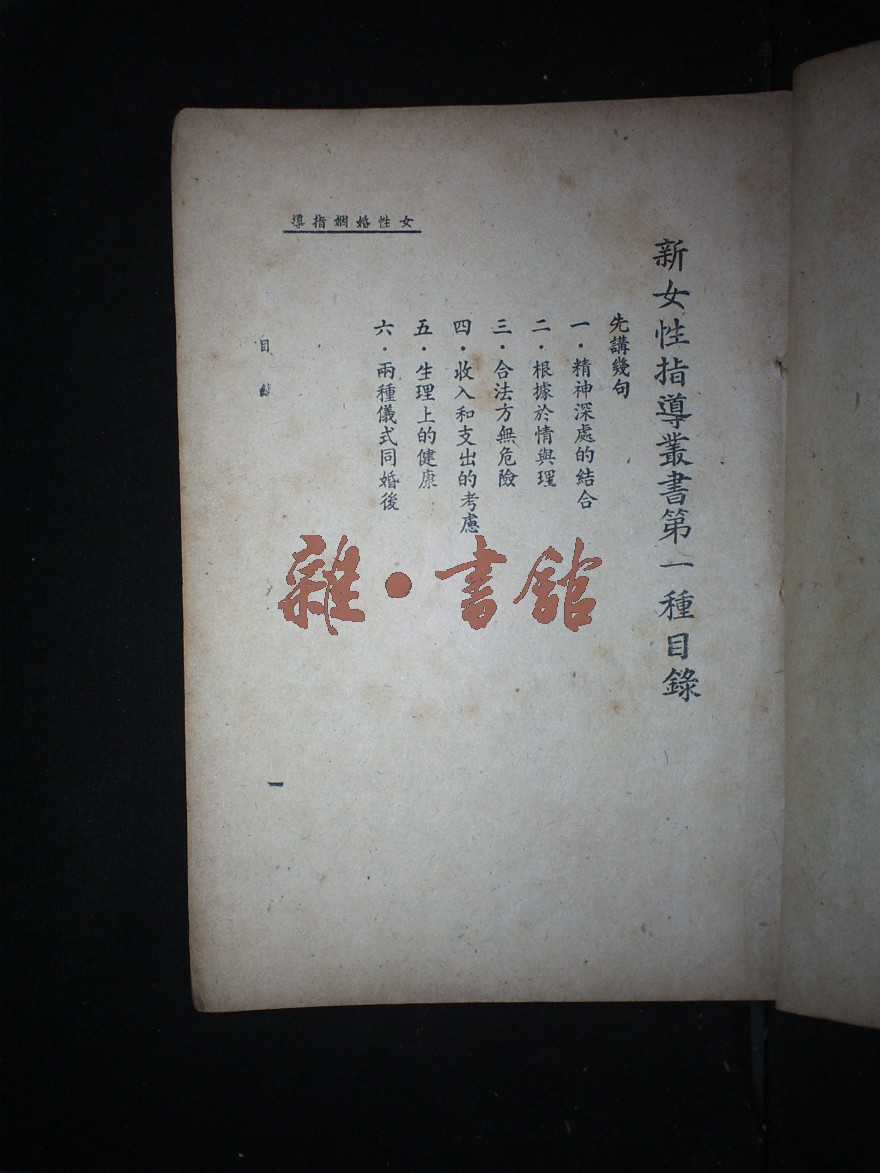 新女性指導叢書第一種目錄
先講幾句
一·精神深處的結合
二·根據於情與理
三·合法方無危險
四·收入和支出的考慮
五·生理上的健康
六·兩種儀式同婚後
女性婚姻指導
目錄
一
雜·書館